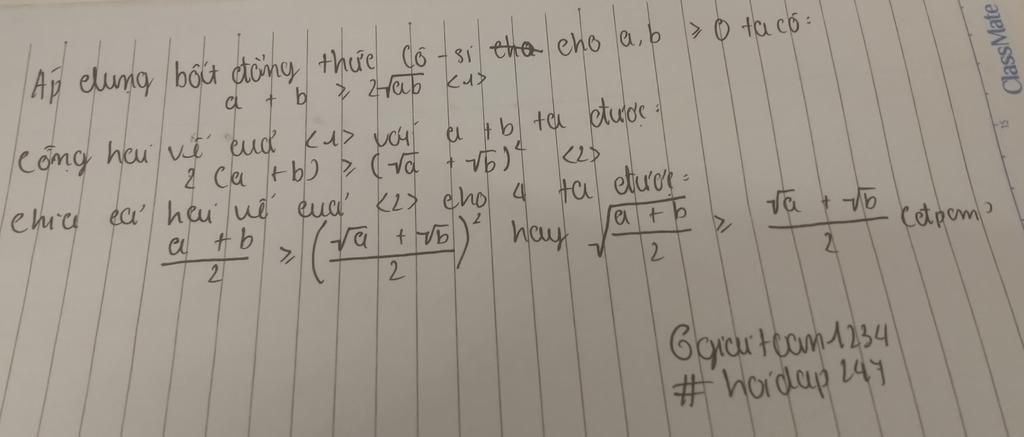 Áp dụng bất đẳng thức Cô-si cho a, b ≥ 0 ta có:
a + b ≥ 2√ab <1>
Cộng hai vế của <1> với a + b ta được:
2 (a + b) ≥ (√a + √b)² <2>
chia cả hai vế của <2> cho 4 ta được:
a + b / 2 ≥ (√a + √b / 2)² hay √(a + b / 2) ≥ √a + √b / 2 (đpcm)
@giaitoan1234
# hoidap 247
ClassMate
15